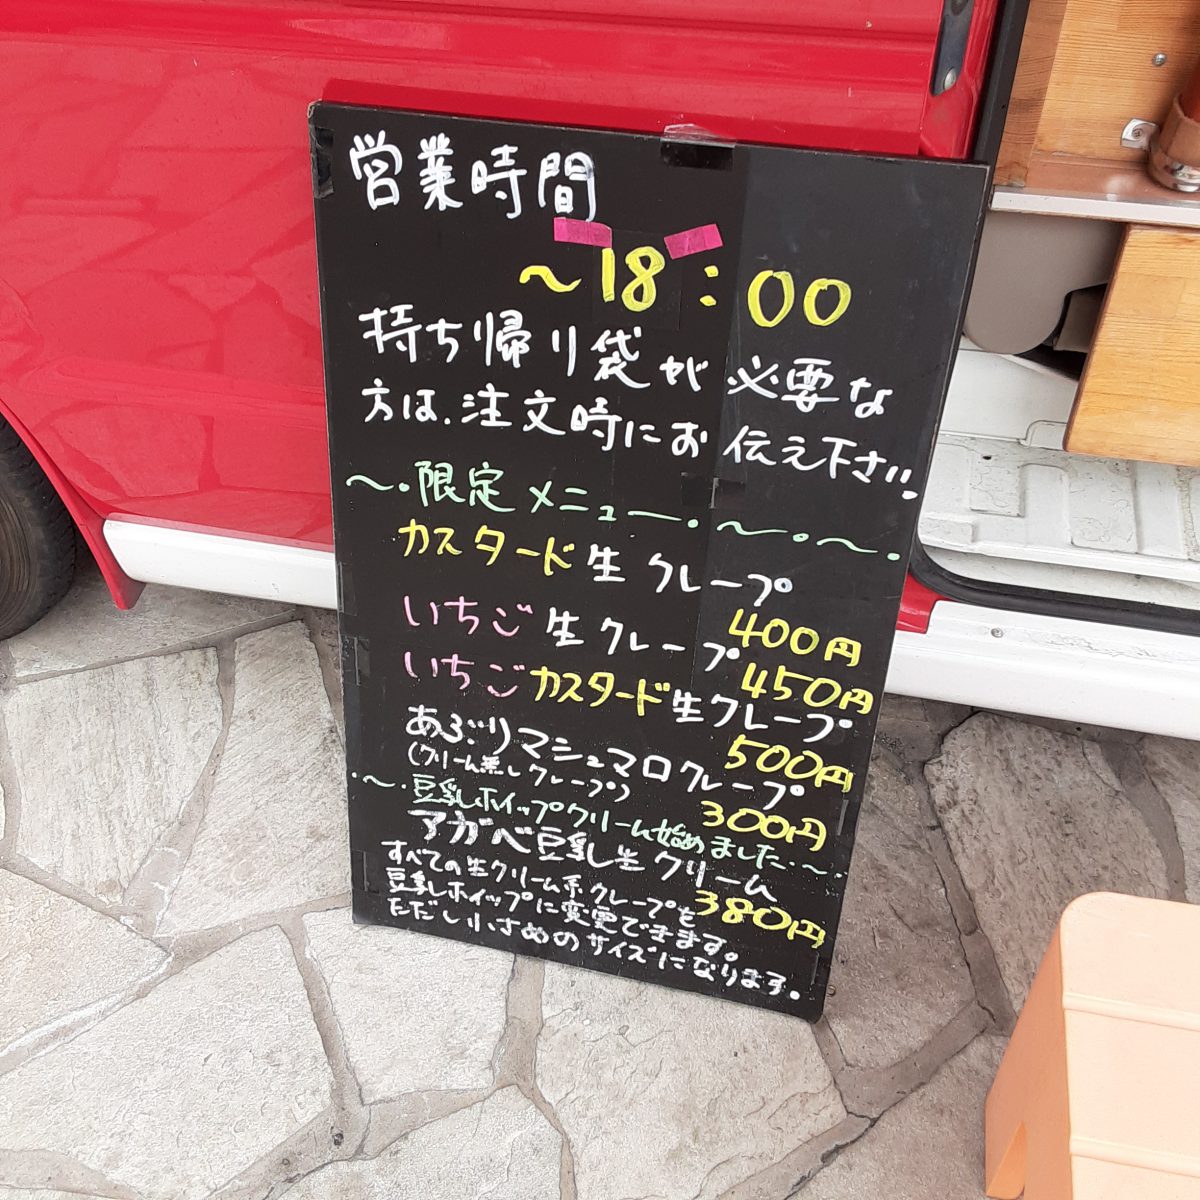 営業時間
～18:00
持ち帰り袋が必要な
方は、注文時にお伝え下さい。
～・限定メニュー・～・～・
カスタード生クレープ
400円
いちご生クレープ
450円
いちごカスタード生クレープ
500円
あぶりマシュマロクレープ
(クリーム無しクレープ)
300円
・～・豆乳ホイップクリーム始めました・～・
アガベ豆乳生クリーム
380円
すべての生クリーム系クレープを
豆乳ホイップに変更できます。
ただし小さめのサイズになります。